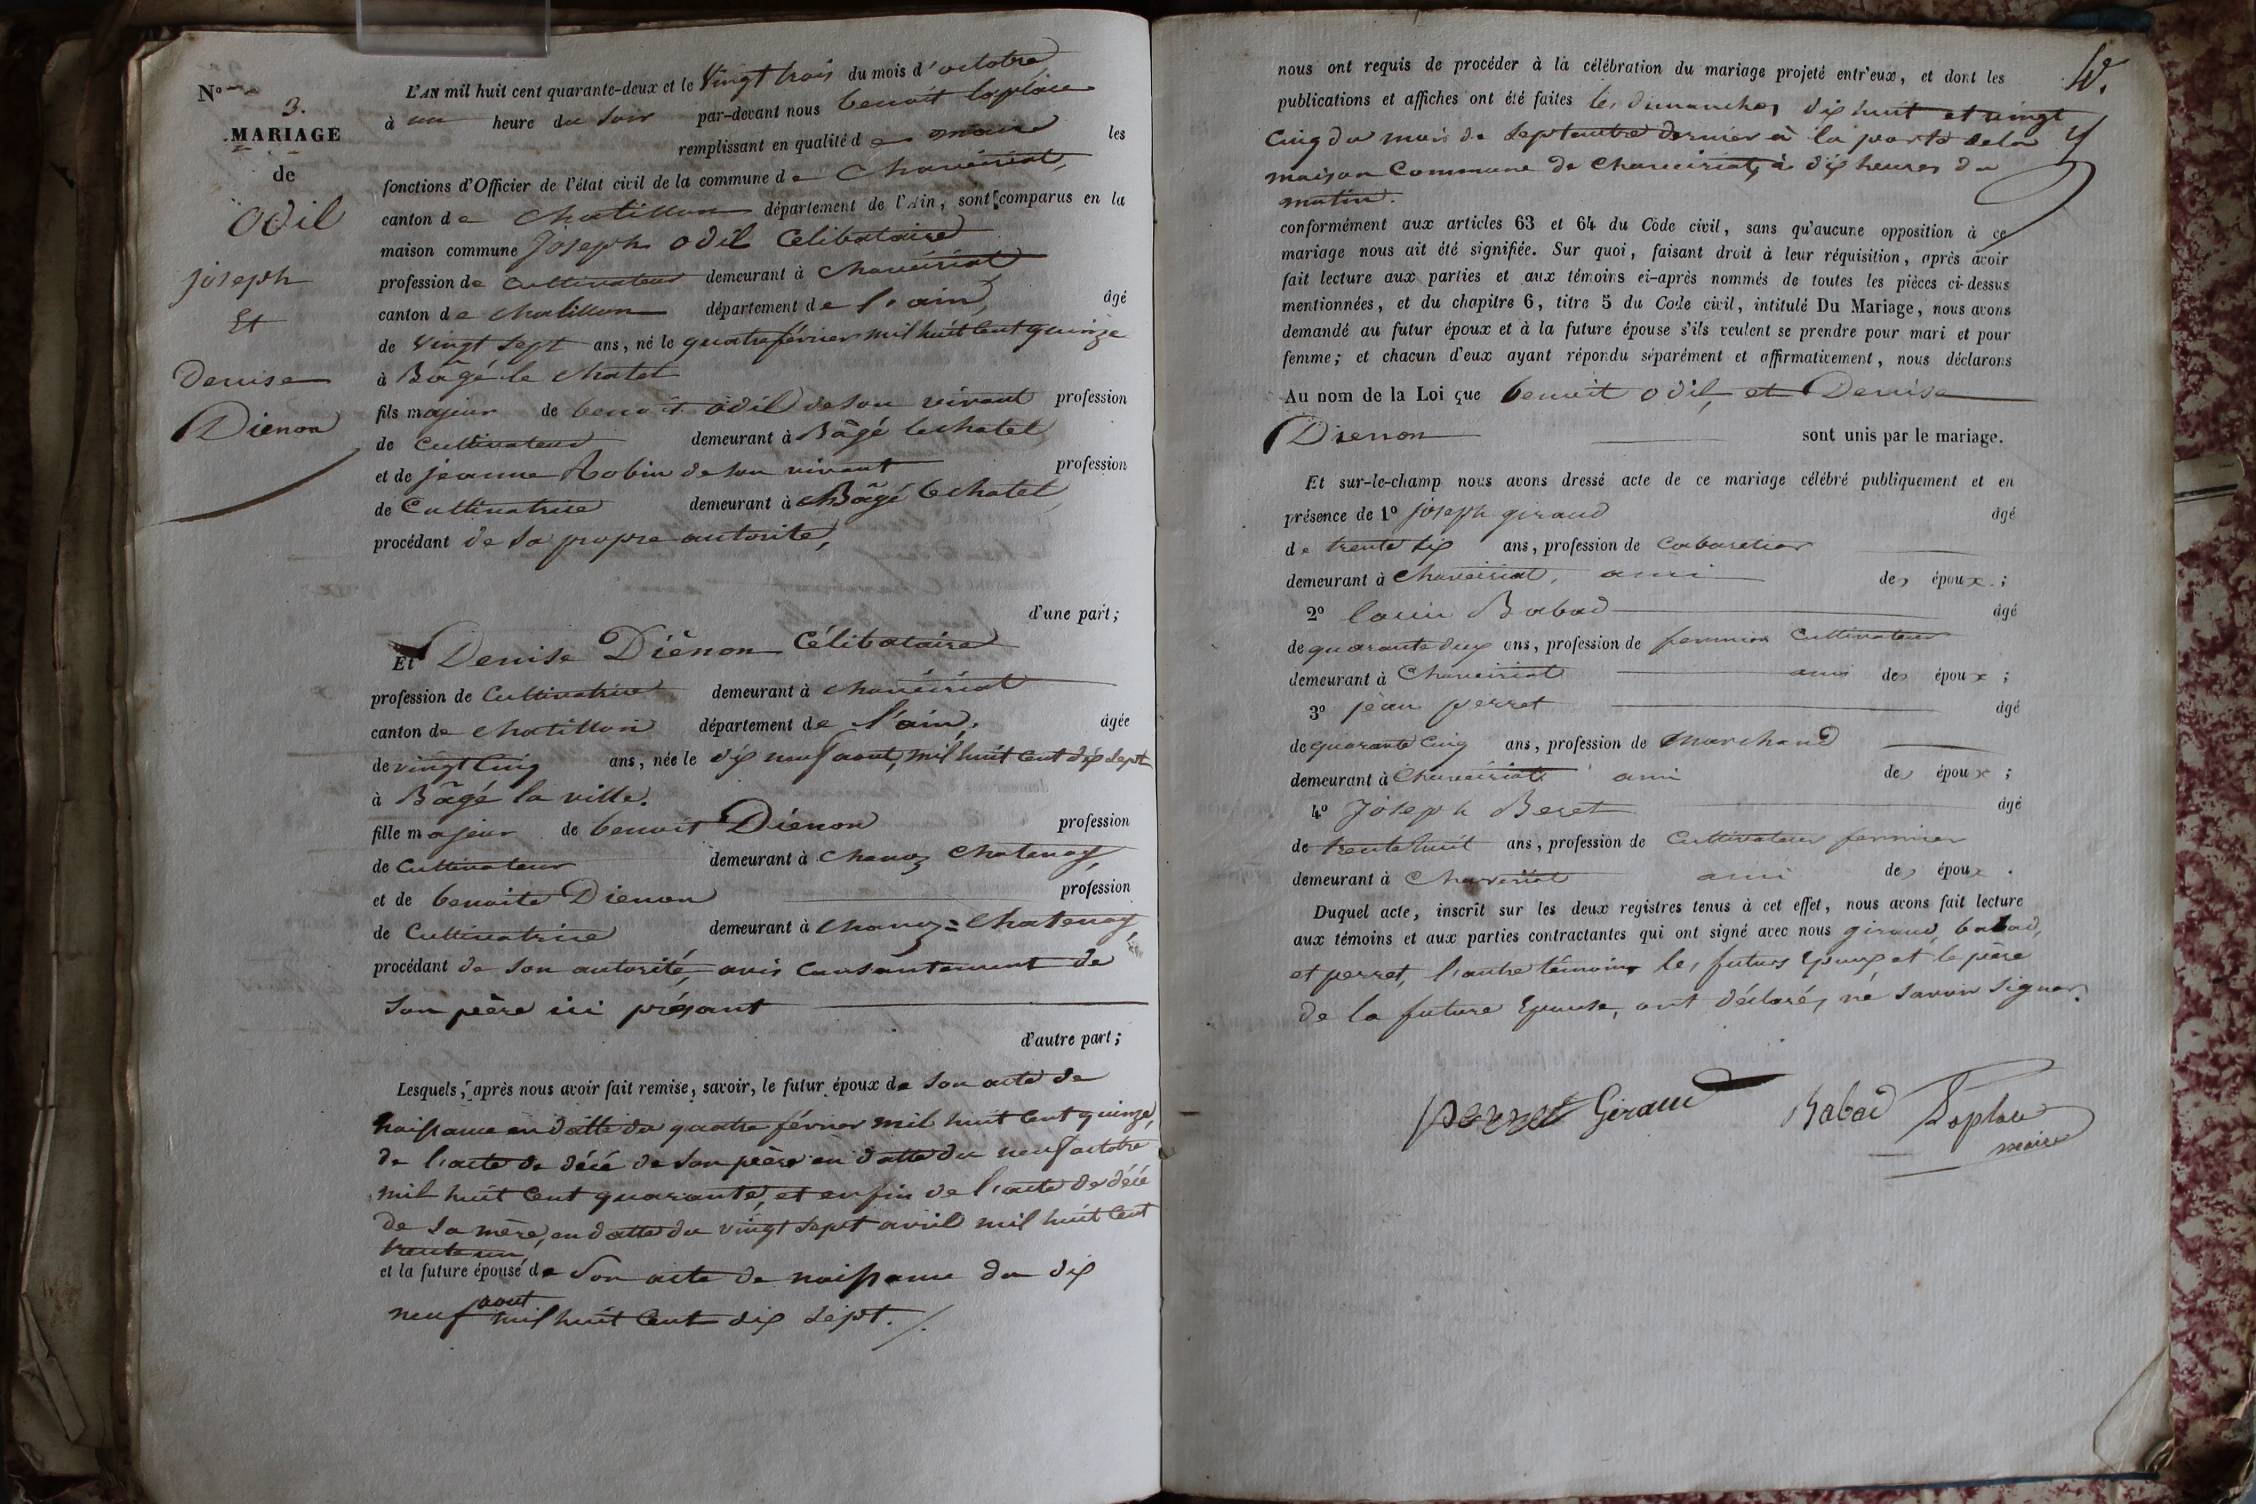 N° 3.
MARIAGE
de
Odil
joseph
Et
Denise
Diénon
L'AN mil huit cent quarante-deux et le Vingt trois du mois d'octobre
à un heure du soir par-devant nous benoit laplace
remplissant en qualité de maire les
fonctions d'Officier de l'état civil de la commune de Chaveiriat,
canton de Chatillon département de l'Ain, sont comparus en la
maison commune Joseph Odil Célibataire
profession de Cultivateur demeurant à Chaveiriat
canton de chatillon département de l'ain, âgé
de Vingt Sept ans, né le quatre février mil huit Cent quinze
à Bâgé le chatel
fils majeur de benoit odil de son vivant profession
de Cultivateur demeurant à Bâgé le chatel
et de jeanne Robin de son vivant profession
de Cultivatrice demeurant à Bâgé le chatel,
procédant de sa propre autorité,
d'une part;
Et Denise Diénon Célibataire
profession de Cultivatrice demeurant à chavéiriat
canton de chatillon département de l'ain, âgée
de vingt Cinq ans, née le dix neuf aout, mil huit Cent dix sept
à Bâgé la ville.
fille majeur de benoit Diénon profession
de Cultivateur demeurant à Chanoz Chatenay,
et de benoite Dienon profession
de Cultivatrice demeurant à Chanoz=Chatenay,
procédant de son autorité, avis Consantement de
son père ici présant
d'autre part;
Lesquels, après nous avoir fait remise, savoir, le futur époux de son acte de
naissance en datte du quatre février mil huit Cent quinze,
de l'acte de décé de son père en datte du neuf octobre
mil huit Cent quarante, et enfin de l'acte de décé
de sa mère, en datte du vingt sept avril mil huit Cent
trente un,
et la future épouse de son acte de naissance du dix
neuf aout mil huit Cent dix sept. /.
nous ont requis de procéder à la célébration du mariage projeté entr'eux, et dont les
publications et affiches ont été faites les dimanches, dix huit et vingt
Cinq du mois de Septembre dernier à la porte de la
maison Commune de Chaveiriat, à dix heures du
matin.
conformément aux articles 63 et 64 du Code civil, sans qu'aucune opposition à ce
mariage nous ait été signifiée. Sur quoi, faisant droit à leur réquisition, après avoir
fait lecture aux parties et aux témoins ci-après nommés de toutes les pièces ci-dessus
mentionnées, et du chapitre 6, titre 5 du Code civil, intitulé Du Mariage, nous avons
demandé au futur époux et à la future épouse s'ils veulent se prendre pour mari et pour
femme; et chacun d'eux ayant répondu séparément et affirmativement, nous déclarons
Au nom de la Loi que benoit odil, et Denise
Dienon sont unis par le mariage.
Et sur-le-champ nous avons dressé acte de ce mariage célébré publiquement et en
présence de 1° joseph giraud âgé
de trente six ans, profession de Cabaretier
demeurant à Chaveiriat, ami des époux;
2° Louis Babad âgé
de quarante deux ans, profession de fermier Cultivateur
demeurant à Chaveiriat ami des époux;
3° jean perret âgé
de quarante Cinq ans, profession de Marchand
demeurant à Chaveiriat ami des époux;
4° Joseph Beret âgé
de trente huit ans, profession de Cultivateur fermier
demeurant à Chaveriat ami des époux.
Duquel acte, inscrit sur les deux registres tenus à cet effet, nous avons fait lecture
aux témoins et aux parties contractantes qui ont signé avec nous giraud, babad,
et perret, l'autre témoins les futurs Epoux et le père
de la future Epouse, ont déclarés, né savoir signer.
perret Giraud Babad Laplace
maire